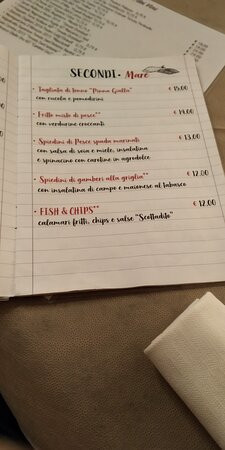 SECONDI • Mare
• Tagliata di tonno "Pinna Gialla" € 15,00
con rucola e pomodorini
• Fritto misto di pesce** € 14,00
con verdurine croccanti
• Spiedini di Pesce spada marinati € 13,00
con salsa di soia e miele, insalatina
e spinacino con carotine in agrodolce
• Spiedini di gamberi alla griglia** € 12,00
con insalatina di campo e maionese al tabasco
• FISH & CHIPS** € 12,00
calamari fritti, chips e salse "Scottadito"